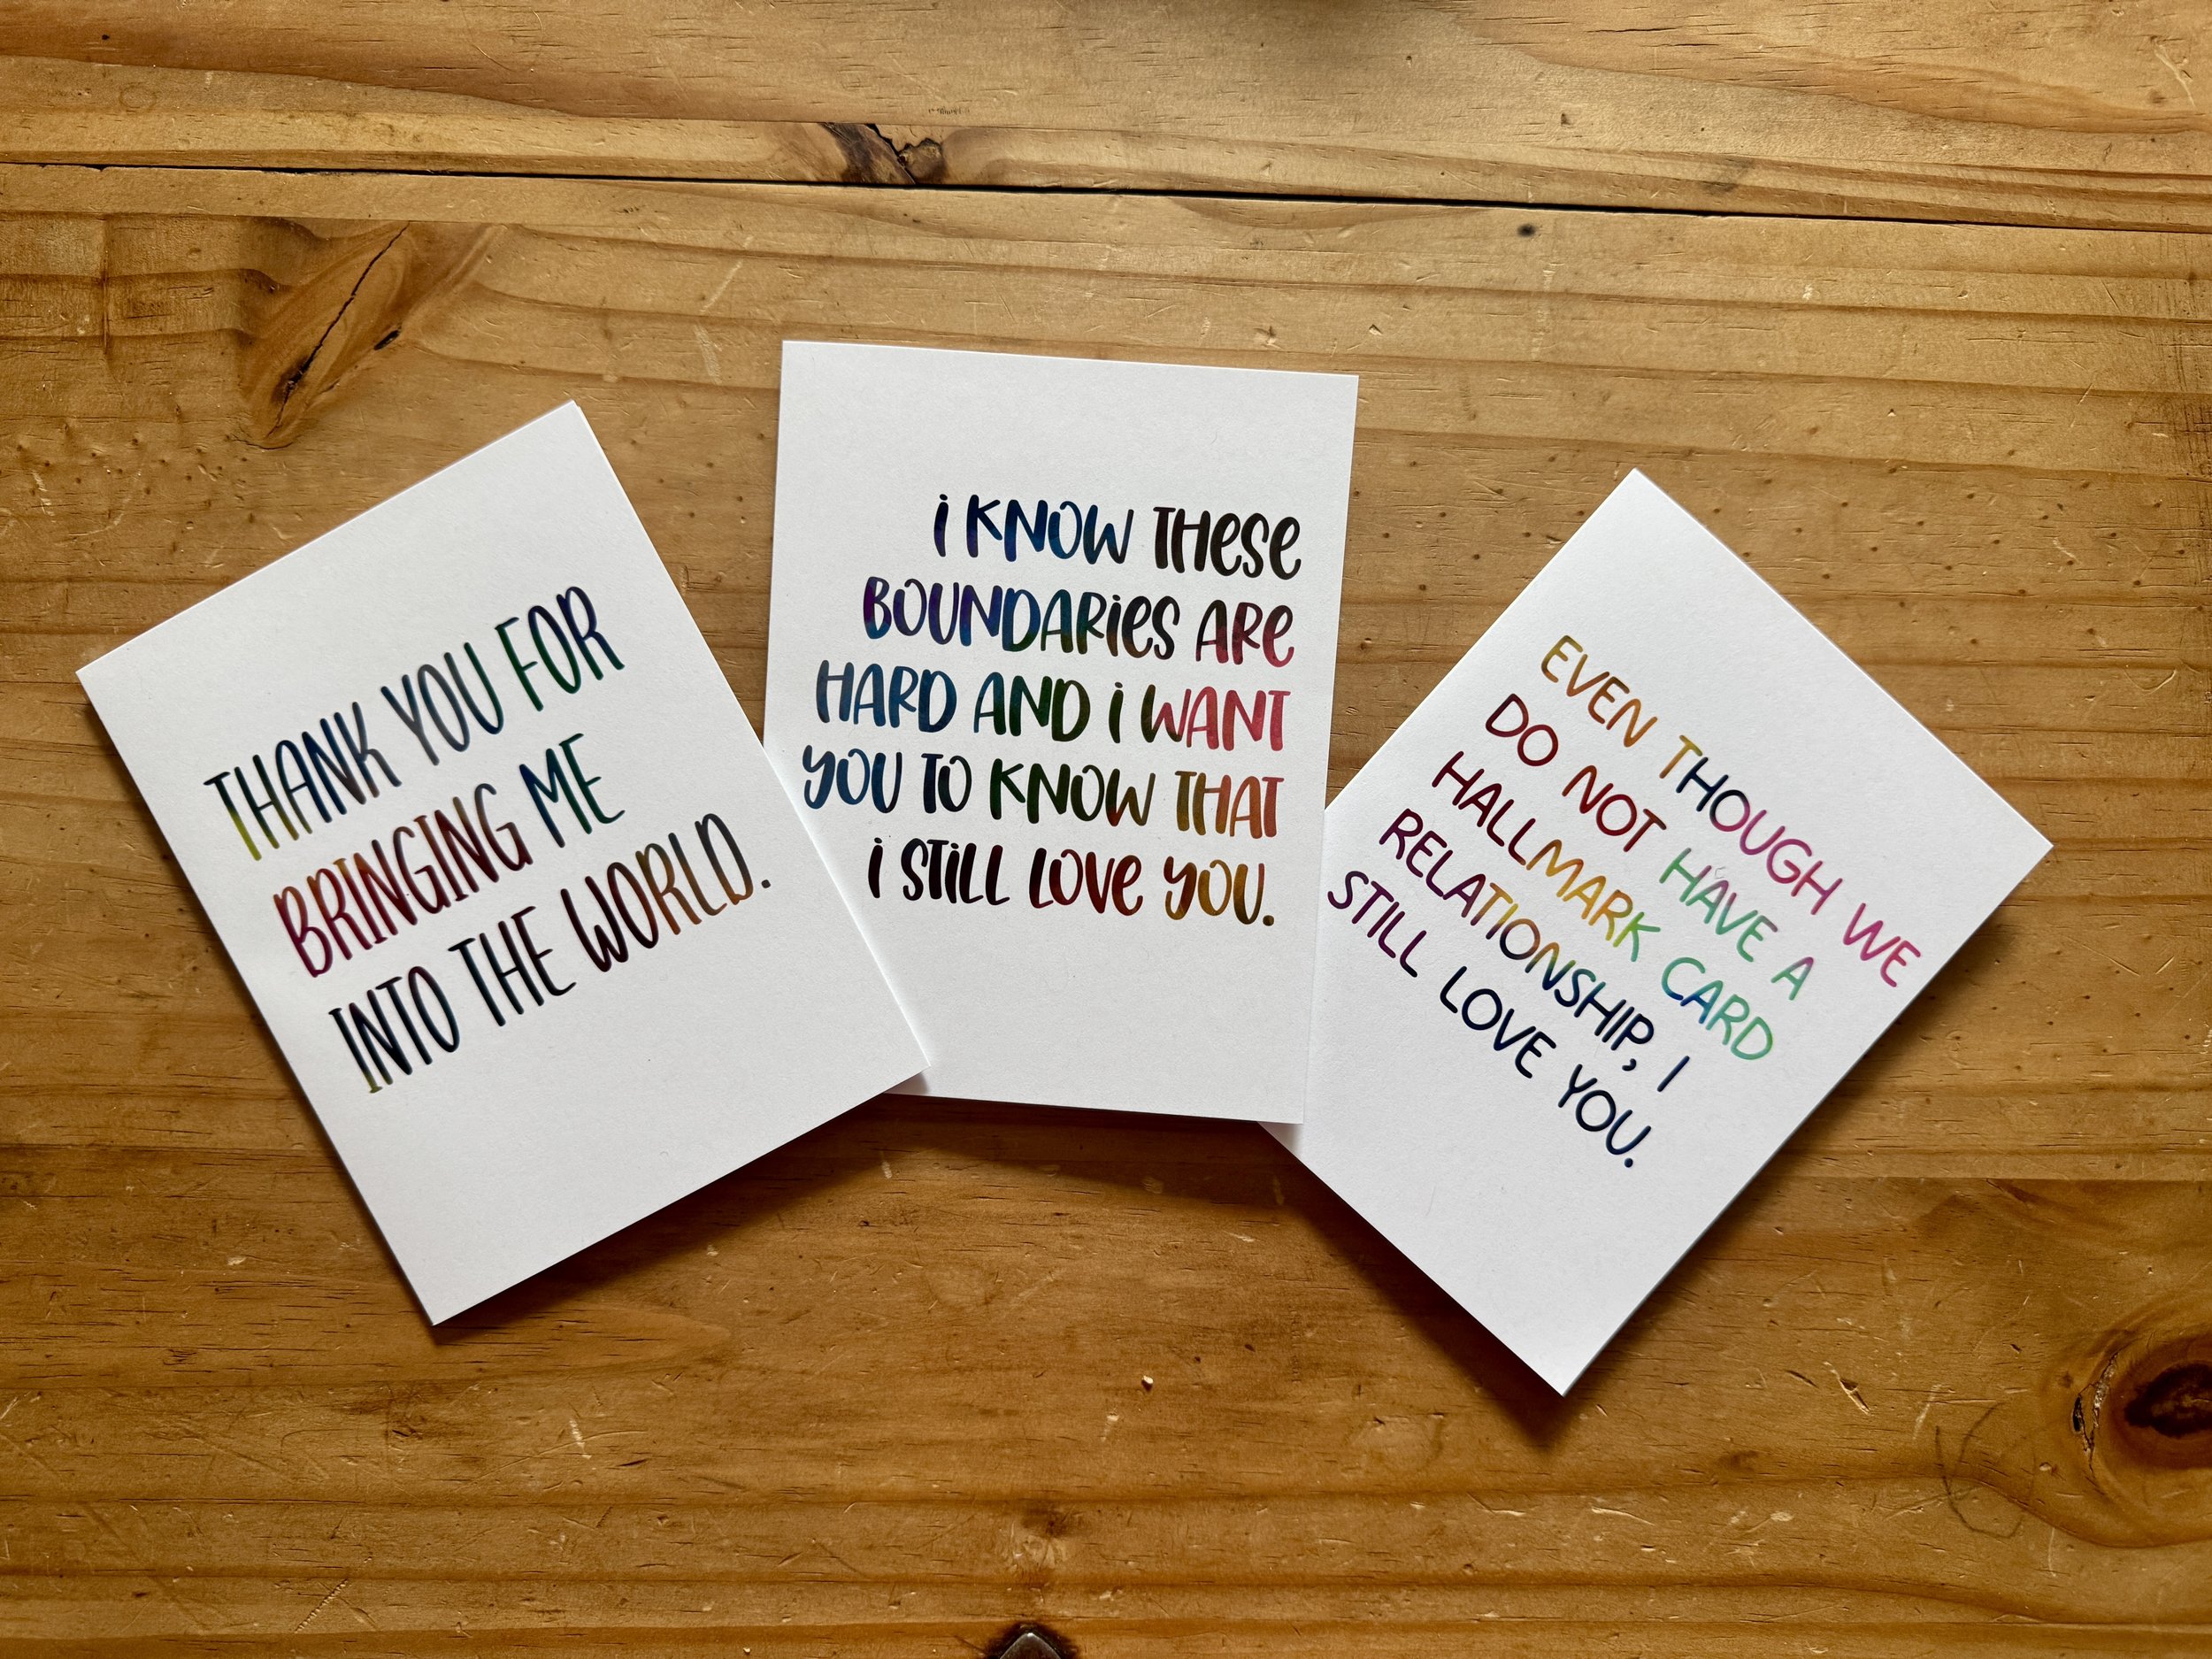 THANK YOU FOR
BRINGING ME
INTO THE WORLD.
i KNOW THESE
BOUNDARIES ARE
HARD AND i WANT
YOU TO KNOW THAT
i STILL LOVE YOU.
EVEN THOUGH WE
DO NOT HAVE A
HALLMARK CARD
RELATIONSHIP, I
STILL LOVE YOU.